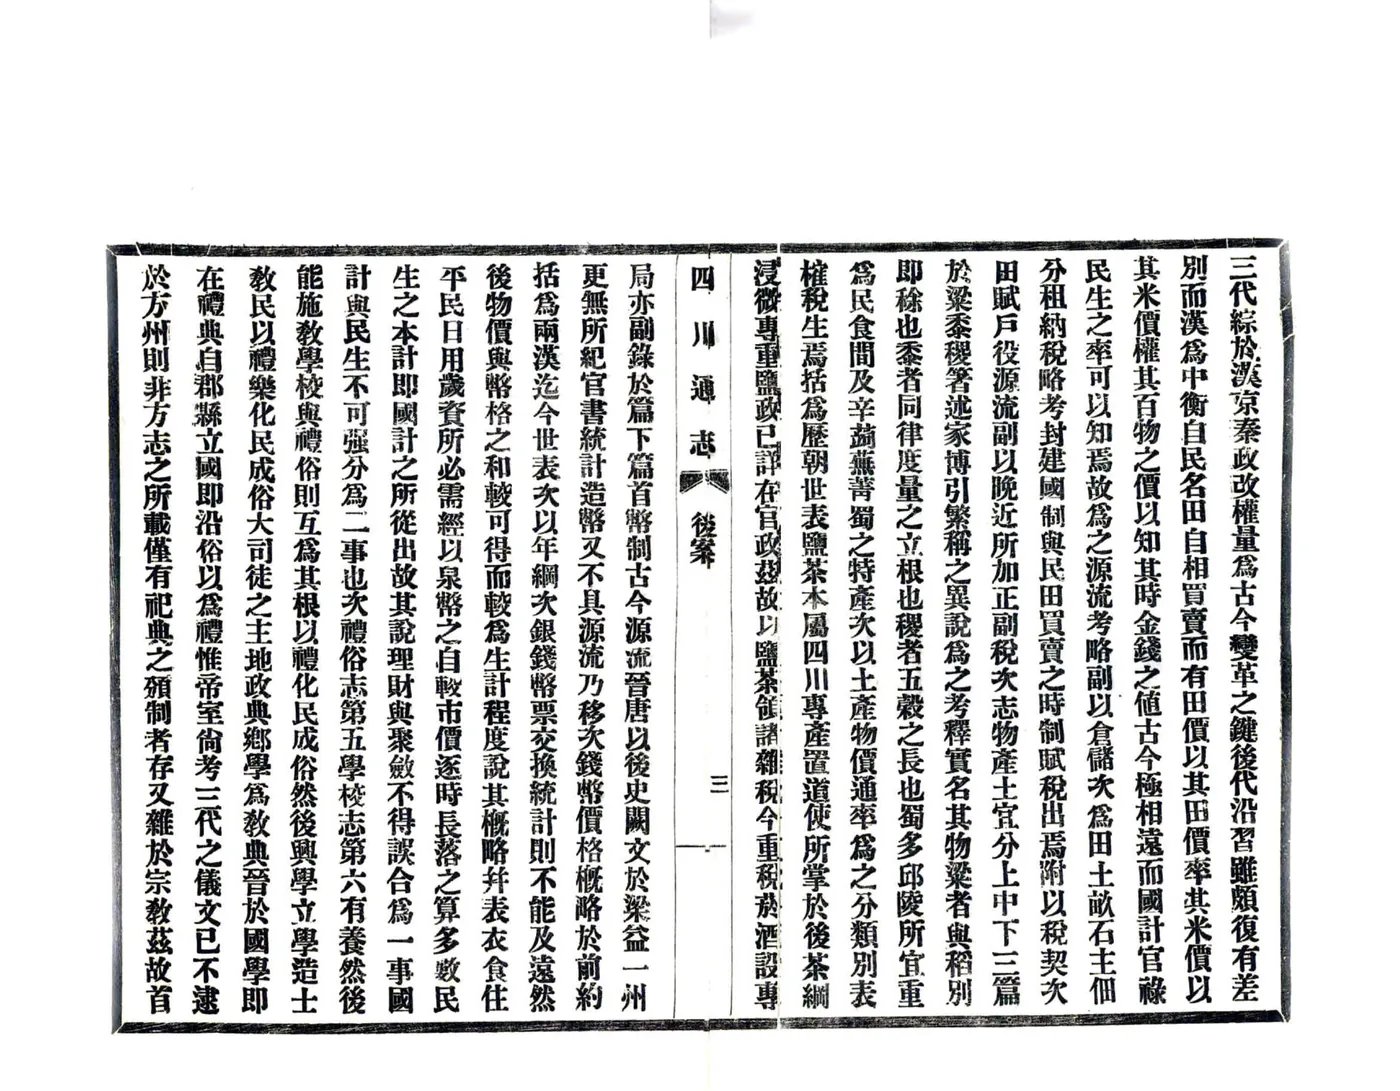 三代綜於漢京秦政改權量爲古今變革之鍵後代沿習雖頗復有差
別而漢爲中衡自民名田自相買賣而有田價以其田價率其米價以
其米價權其百物之價以知其時金錢之値古今極相遠而國計官祿
民生之率可以知焉故爲之源流考略副以倉儲次爲田土畝石主佃
分租納稅略考封建國制與民田買賣之時制賦稅出焉附以稅契次
田賦戶役源流副以晚近所加正副稅次志物產土宜分上中下三篇
於粱黍稷箸述家博引繁稱之異說爲之考釋實名其物粱者與稻別
即稌也黍者同律度量之立根也稷者五穀之長也蜀多邱陵所宜重
爲民食間及辛蒟蕪菁蜀之特產次以土產物價通率爲之分類別表
榷稅生焉括爲歷朝世表鹽茶本屬四川專產置道使所掌於後茶綱
浸微專重鹽政已詳在官政茲故以鹽茶領諸雜稅今重稅菸酒設專
四川通志
後案
三
局亦副錄於篇下篇首幣制古今源流晉唐以後史闕文於梁益一州
更無所紀官書統計造幣又不具源流乃移次錢幣價格概略於前約
括爲兩漢迄今世表次以年綱次銀錢幣票交換統計則不能及遠然
後物價與幣格之和較可得而較爲生計程度說其概略并表衣食住
平民日用歲資所必需經以泉幣之自較市價逐時長落之算多數民
生之本計即國計之所從出故其說理財與聚斂不得誤合爲一事國
計與民生不可强分爲二事也次禮俗志第五學校志第六有養然後
能施敎學校與禮俗則互爲其根以禮化民成俗然後興學立學造士
敎民以禮樂化民成俗大司徒之主地政典鄕學爲敎典晉於國學即
在禮典自郡縣立國即沿俗以爲禮惟帝室尙考三代之儀文已不逮
於方州則非方志之所載僅有祀典之頒制者存又雜於宗敎茲故首